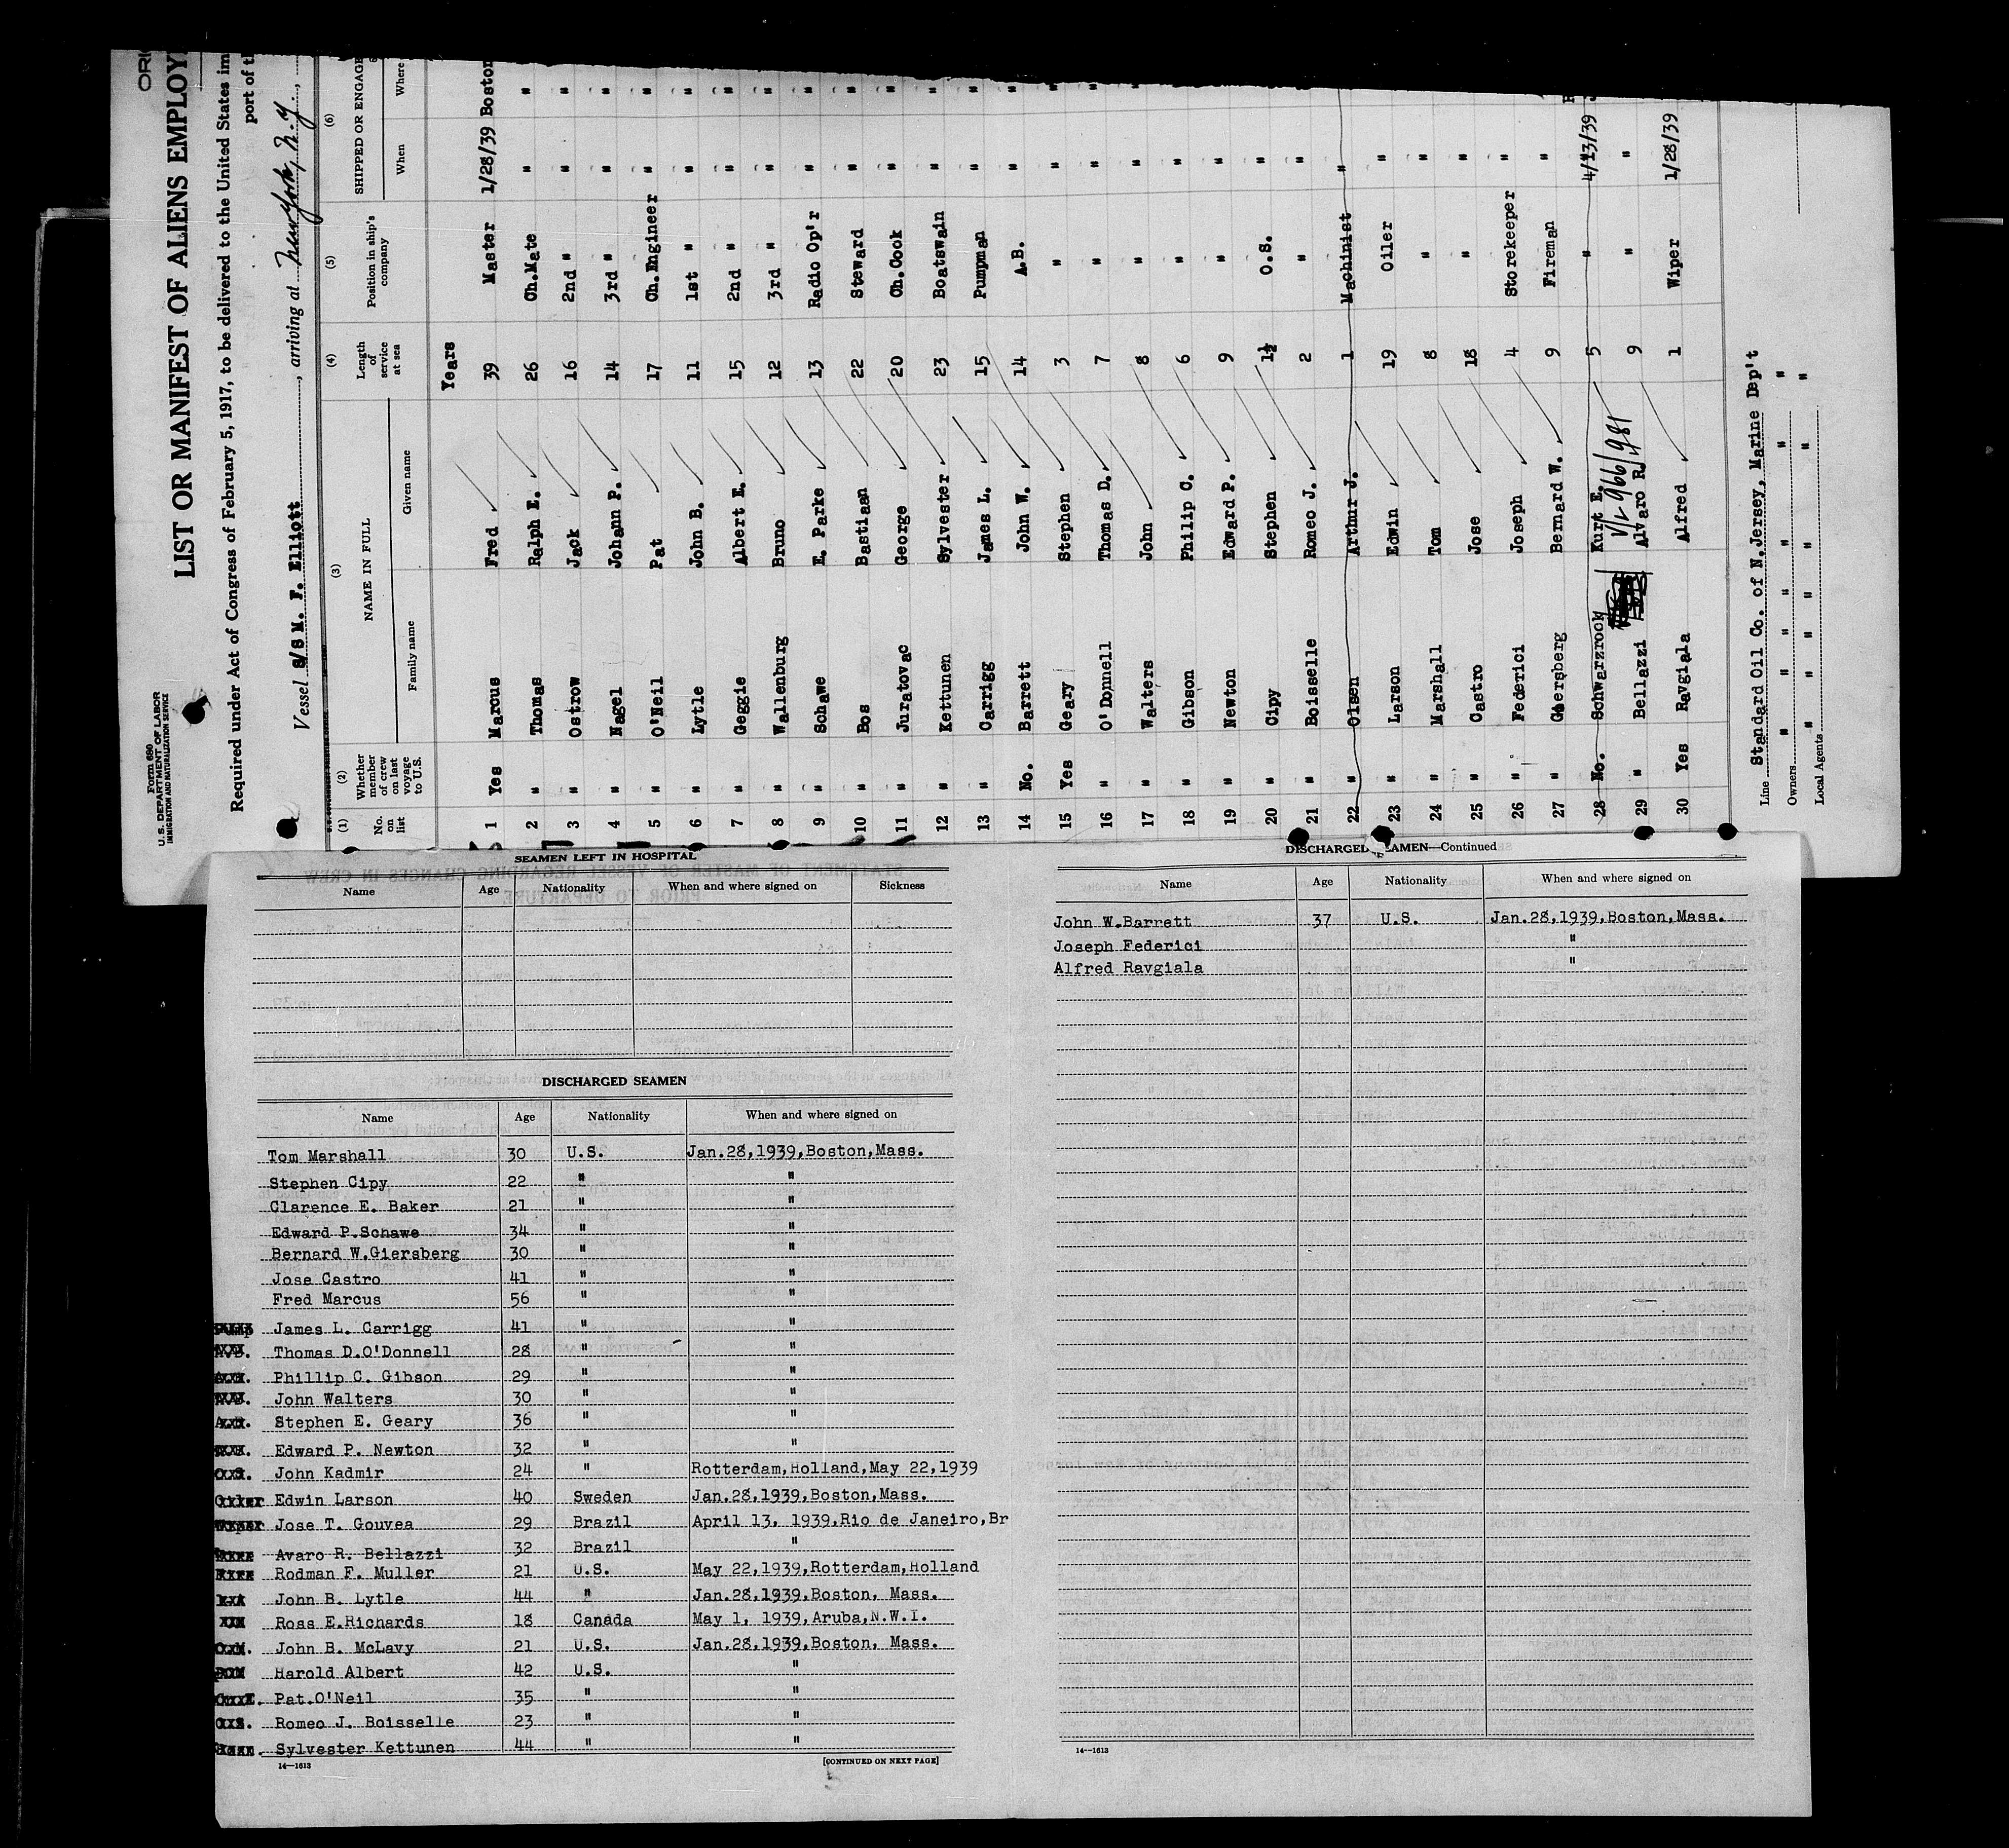 ORI
Form 680
U. S. DEPARTMENT OF LABOR
IMMIGRATION AND NATURALIZATION SERVICE
LIST OR MANIFEST OF ALIENS EMPLOY
Required under Act of Congress of February 5, 1917, to be delivered to the United States im
port of t
Vessel S/S M. F. Elliott, arriving at New York, N.Y.,
(1) (2) (3) (4) (5) (6)
No. on list Whether member of crew on last voyage to U.S. NAME IN FULL Family name Given name Length of service at sea Position in ship's company SHIPPED OR ENGAGE When Where
Years
1 Yes Marcus Fred 39 Master 1/28/39 Boston
2 " Thomas Ralph E. 26 Ch.Mate " "
3 " Ostrow Jack 16 2nd " " "
4 " Nagel Johann P. 14 3rd " " "
5 " O'Neil Pat 17 Ch.Engineer " "
6 " Lytle John B. 11 1st " " "
7 " Geggie Albert E. 15 2nd " " "
8 " Wallenburg Bruno 12 3rd " " "
9 " Schawe E. Parke 13 Radio Op'r " "
10 " Bos Bastiaan 22 Steward " "
11 " Juratovac George 20 Ch.Cook " "
12 " Kettunen Sylvester 23 Boatswain " "
13 " Carrigg James L. 15 Pumpman " "
14 No. Barrett John W. 14 A.B. " "
15 Yes Geary Stephen 3 " " "
16 " O'Donnell Thomas D. 7 " " "
17 " Walters John 8 " "
18 " Gibson Philip C. 6 " "
19 " Newton Edward P. 9 " "
20 " Cipy Stephen 1½ O.S. "
21 " Boisselle Romeo J. 2 " "
22 " Olsen Arthur J. 1 Machinist "
23 " Larson Edwin 19 Oiler "
24 " Marshall Tom 8 " "
25 " Castro Jose 18 " "
26 " Federici Joseph 4 Storekeeper "
27 " Giersberg Bernard W. 9 Fireman "
28 No. Schwarzrock Kurt E. 5 " 4/13/39
29 " Bellazzi Alvaro R. 9 " "
30 Yes Ravgiala Alfred 1 Wiper 1/28/39
Line Standard Oil Co. of N.Jersey, Marine Dep't
Owners " " " " "
Local Agents " " " " "
SEAMEN LEFT IN HOSPITAL
Name Age Nationality When and where signed on Sickness
DISCHARGED SEAMEN
Name Age Nationality When and where signed on
Tom Marshall 30 U.S. Jan.28,1939,Boston,Mass.
Stephen Cipy 22 " "
Clarence E. Baker 21 " "
Edward P.Schawe 34 " "
Bernard W.Giersberg 30 " "
Jose Castro 41 " "
Fred Marcus 56 " "
James L. Carrigg 41 " "
Thomas D.O'Donnell 28 " "
Phillip C. Gibson 29 " "
John Walters 30 " "
Stephen E. Geary 36 " "
Edward P. Newton 32 " "
John Kadmir 24 " Rotterdam,Holland,May 22,1939
Edwin Larson 40 Sweden Jan.28,1939,Boston,Mass.
Jose T. Gouvea 29 Brazil April 13, 1939,Rio de Janeiro,Br
Avaro R. Bellazzi 32 Brazil "
Rodman F. Muller 21 U.S. May 22,1939,Rotterdam,Holland
John B. Lytle 44 " Jan.28,1939,Boston, Mass.
Ross E.Richards 18 Canada May 1, 1939,Aruba,N.W.I.
John B. McLavy 21 U.S. Jan.28,1939,Boston, Mass.
Harold Albert 42 U.S. "
Pat.O'Neil 35 " "
Romeo J. Boisselle 23 " "
Sylvester Kettunen 44 " "
14—1613 [CONTINUED ON NEXT PAGE]
DISCHARGED SEAMEN—Continued
Name Age Nationality When and where signed on
John W.Barrett 37 U.S. Jan.28,1939,Boston,Mass.
Joseph Federici "
Alfred Ravgiala "
14—1613